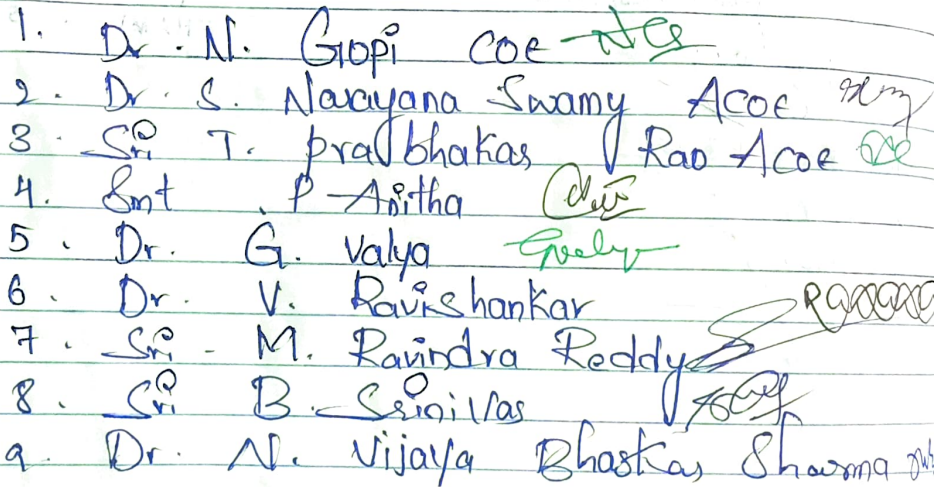 1. Dr. N. Gopi COE
2. Dr. S. Narayana Swamy ACOE
3. Sri T. prabhakar Rao ACOE
4. Smt P. Anitha
5. Dr. G. Valya
6. Dr. V. Ravishankar
7. Sri. M. Ravindra Reddy
8. Sri B. Srinivas
9. Dr. N. Vijaya Bhaskar Sharma